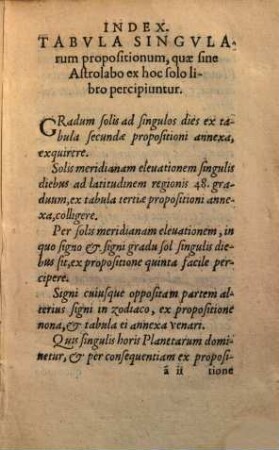 INDEX.
TABVLA SINGVLA-
rum propositionum, quæ sine
Astrolabo ex hoc solo li
bro percipiuntur.
GRadum solis ad singulos dies ex ta
bula secundæ propositioni annexa,
exquirere.
Solis meridianam eleuationem singulis
diebus ad latitudinem regionis 48. gra-
duum, ex tabula tertiæ propositioni anne
xa, colligere.
Per solis meridianam eleuationem, in
quo signo & signi gradu sol singulis die
bus sit, ex propositione quinta facile per
cipere.
Signi cuiusque oppositam partem al-
terius signi in zodiaco, ex propositione
nona, & tabula ei annexa venari.
Quis singulis horis Planetarum domi-
netur, & per consequentiam ex proposi-
ã ii tione